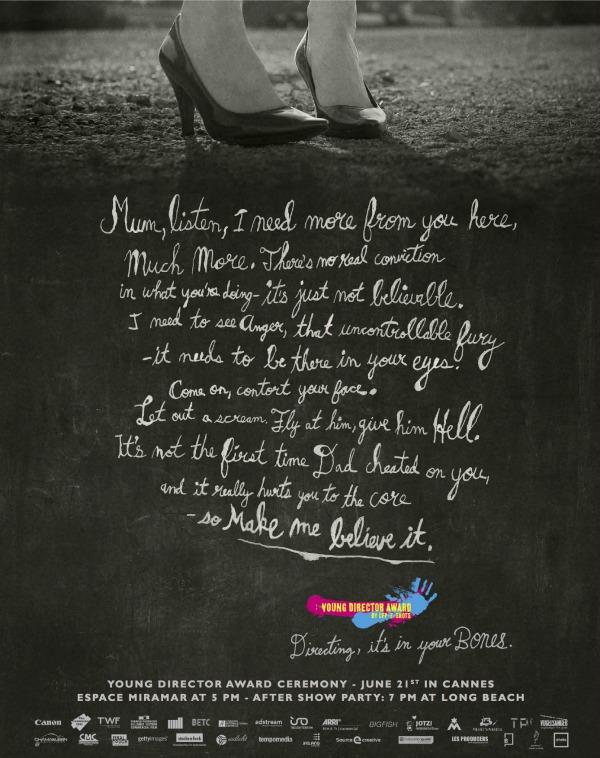 Mum, listen, I need more from you here,
Much More. There's no real conviction
in what you're doing - it's just not believable.
I need to see Anger, that uncontrollable fury
- it needs to be there in your eyes.
Come on, contort your face.
Let out a scream. Fly at him, give him Hell.
It's not the first time Dad cheated on you,
and it really hurts you to the core
- so Make me believe it.
YOUNG DIRECTOR AWARD
BY CFP-E/SHOTS
Directing, it's in your Bones.
YOUNG DIRECTOR AWARD CEREMONY - JUNE 21ST IN CANNES
ESPACE MIRAMAR AT 5 PM - AFTER SHOW PARTY: 7 PM AT LONG BEACH
Canon TWF BETC adstream ARRI BIGFISH JOTZ!
CMC gettyimages tempomedia Source creative LES PRODUCERS